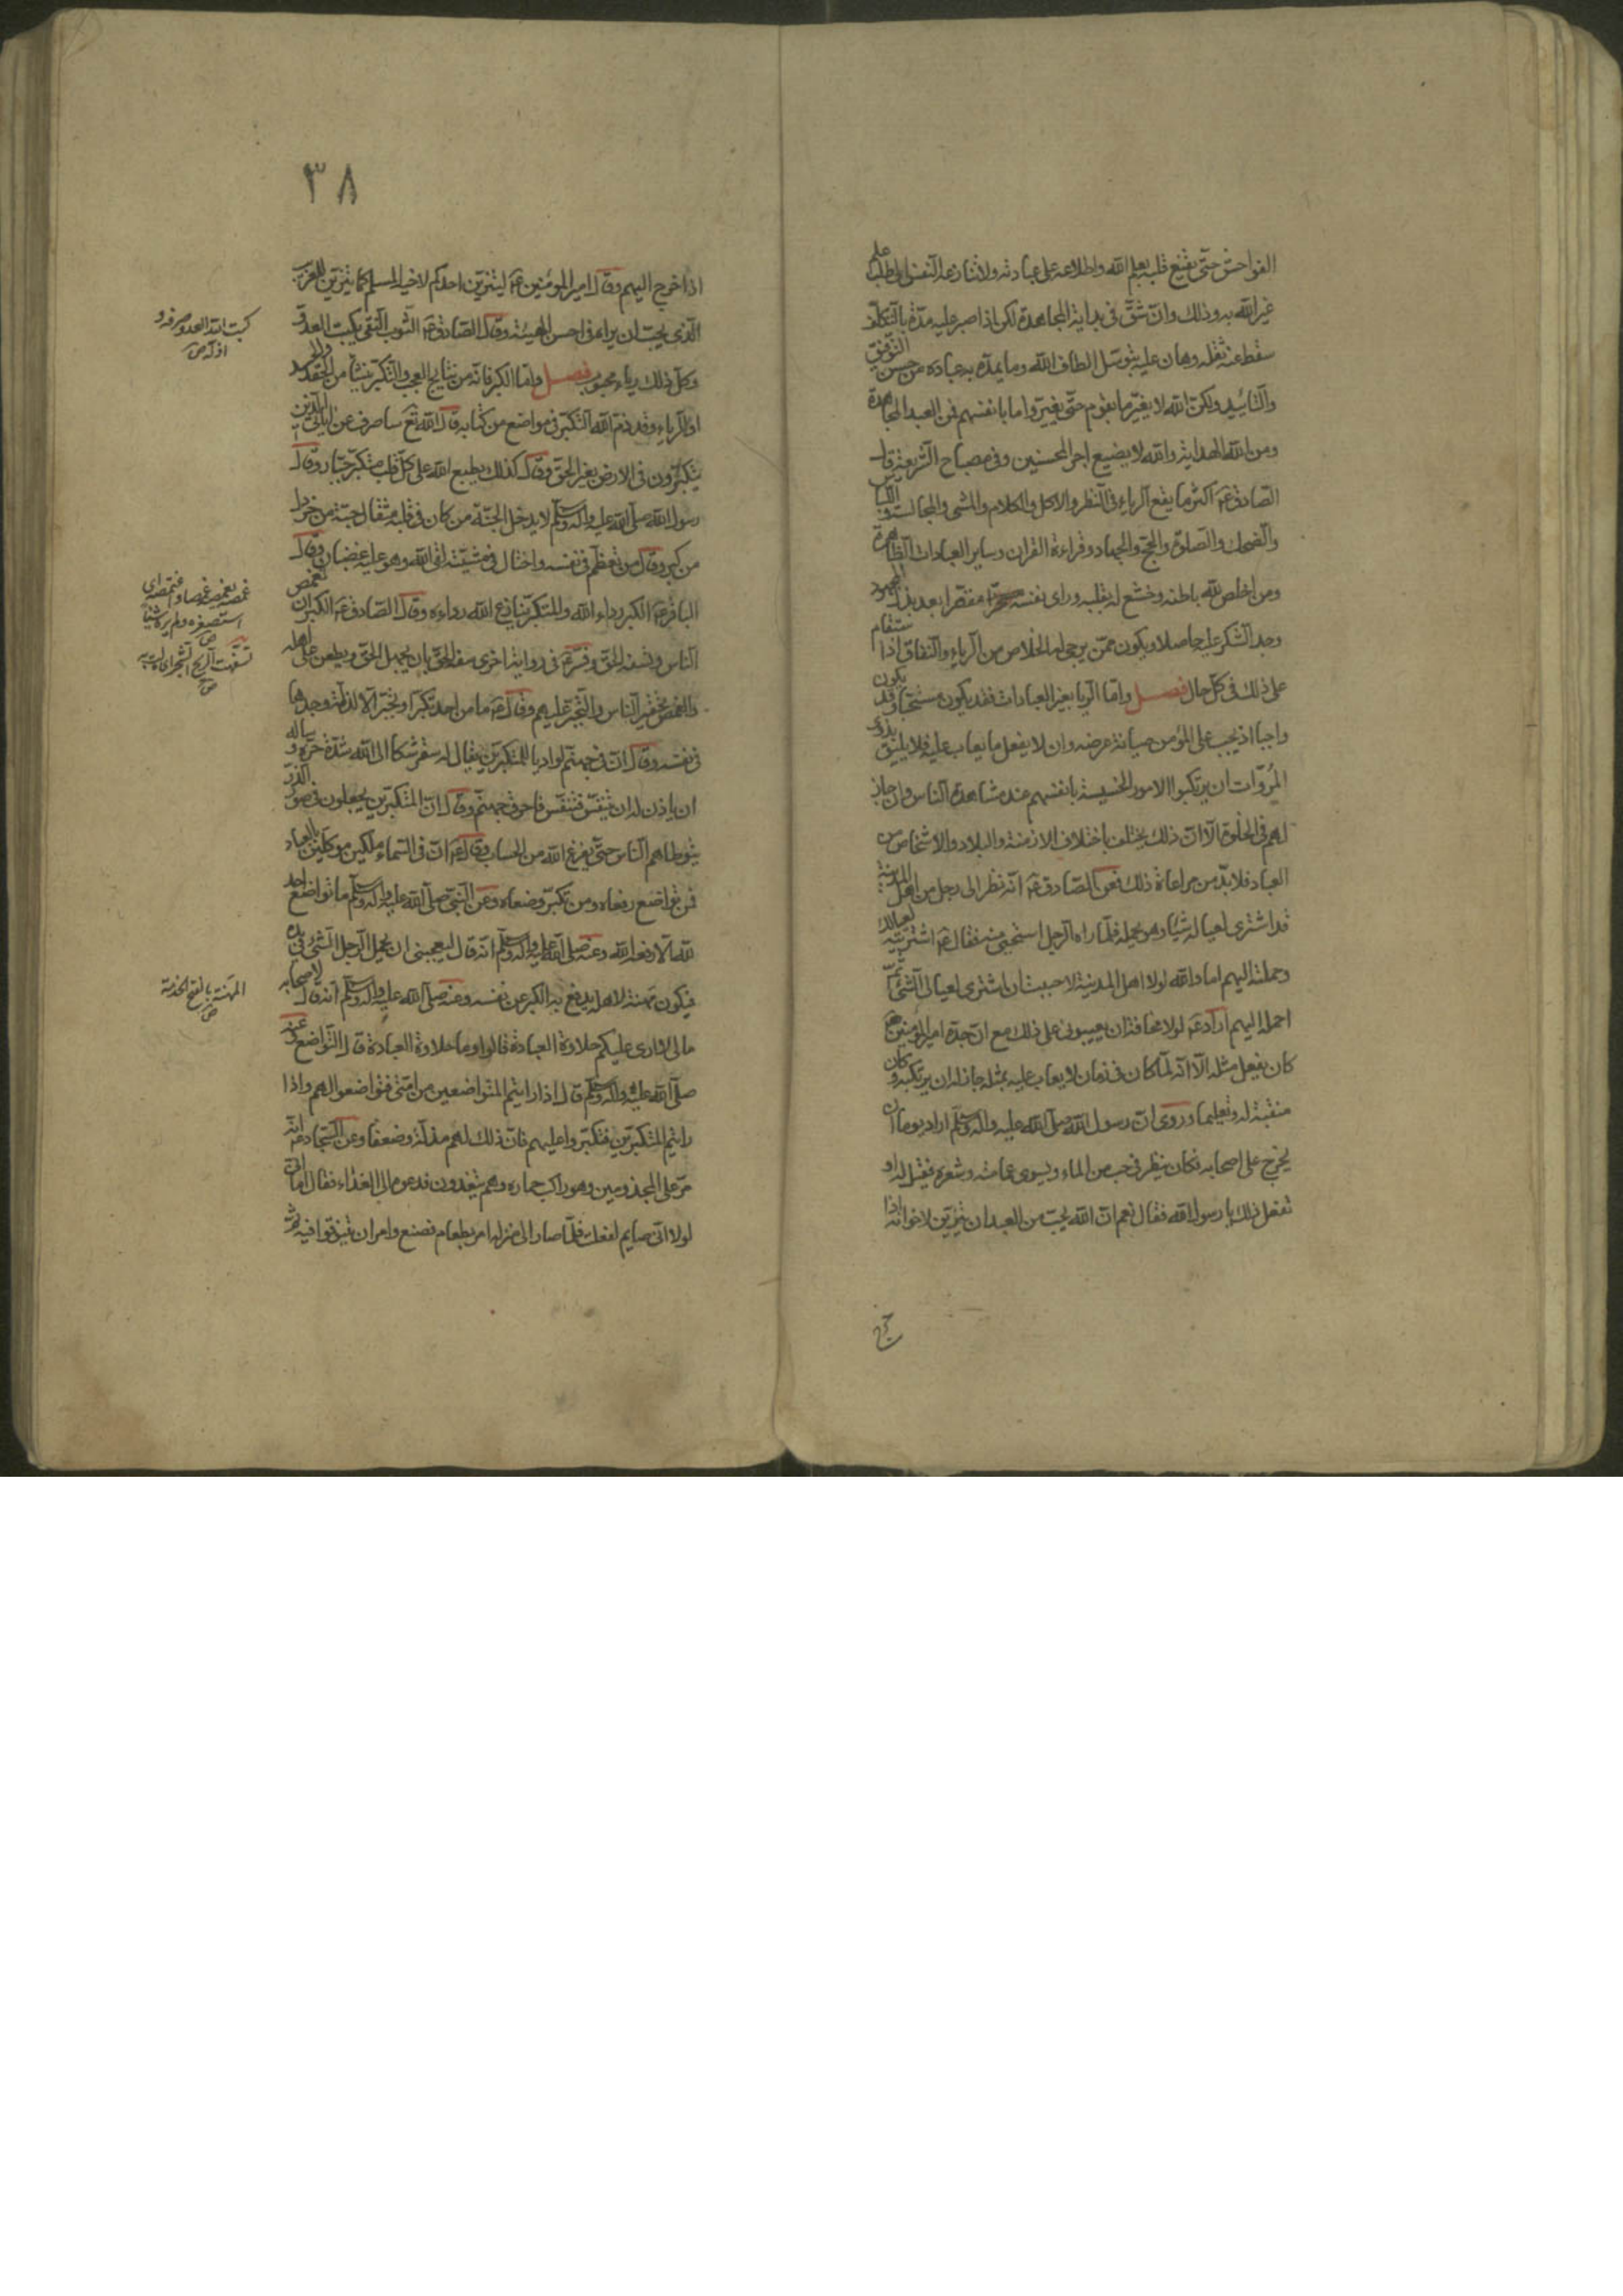 الفواحش حتى يقنع قلبه بعلم الله واطلاعه على عبادته ولا تنازعه النفس الى طلب علم
غير الله به وذلك وان شق في بداية المجاهدة لكن اذا صبر عليه مدة بالتكلف
سقط عنه ثقله وهان عليه بتوصل الطاف الله وما يمد به عباده من حسن التوفيق
والتأييد ولكن الله لا يغير ما بقوم حتى يغيروا ما بانفسهم فمن العبد المجاهدة
ومن الله الهداية والله لا يضيع اجر المحسنين وفي مصباح الشريعة قال
الصادق ع اكثر ما يقع الرياء في النظر والاكل والكلام والمشي والمجالسة واللباس
والضحك والصلوة والحج والجهاد وقراءة القران وساير العبادات الظاهرة
ومن اخلص لله باطنه وخشع له بقلبه وراى نفسه مقصرا بعد بذل المجهود
وجد الشكر عليه حاصلا ويكون ممن يرجى له الخلاص من الرياء والنفاق اذا استقام
على ذلك في كل حال فصل واما الريا بغير العبادات فقد يكون مستحبا وقد يكون
واجبا اذ يجب على المؤمن صيانة عرضه وان لا يفعل ما يعاب عليه فلا يليق بذوي
المروات ان يرتكبوا الامور الخسيسة بانفسهم عند مشاهدة الناس وان جاز
لهم في الخلوة الا ان ذلك يختلف باختلاف الازمنة والبلاد والاشخاص من
العباد فلا بد من مراعاة ذلك فعن الصادق ع انه نظر الى رجل من اهل المدينة
قد اشترى لعياله شيئا وهو يحمله فلما راه الرجل استحيى منه فقال ع اشتريته لعيالك
وحملته اليهم اما والله لولا اهل المدينة لاحببت ان اشترى لعيالى الشئ ثم
احمله اليهم اراد ع لولا مخافة ان يعيبوني على ذلك مع ان جده امير المؤمنين ع
كان يفعل مثله الا انه لما كان في زمان لا يعاب عليه بمثله جاز له ان يرتكبه وكان
منقبة له وتعليما وروى ان رسول الله صلى الله عليه واله وسلم اراد يوما ان
يخرج على اصحابه فكان ينظر في حب من الماء ويسوى عمامته وشعره فقيل له او
تفعل ذلك يا رسول الله فقال نعم ان الله يحب من العبد ان يتزين لاخوانه اذا
٣٨
اذا خرج اليهم وقال امير المؤمنين ع ليتزين احدكم لاخيه المسلم كما يتزين للغريب
الذي يحب ان يراه في احسن الهيئة وقال الصادق ع الثوب النقى يكبت العدو
وكل ذلك رياء محبوب فصل واما الكبر فانه من نتايج العجب والتكبر ينشأ من الحقد والحسد
او الرياء وقد ذم الله التكبر في مواضع من كتابه قال الله تع ساصرف عن اياتي الذين
يتكبرون في الارض بغير الحق وقال كذلك يطبع الله على كل قلب متكبر جبار وقال
رسول الله صلى الله عليه واله وسلم لا يدخل الجنة من كان في قلبه مثقال حبة من خردل
من كبر وقال من تعظم في نفسه واختال في مشيته لقى الله وهو عليه غضبان وقال
الباقر ع الكبر رداء الله والمتكبر ينازع الله رداءه وقال الصادق ع الكبر ان تغمص
الناس وتسفه الحق وفسر ع في رواية اخرى سفه الحق بان يجهل الحق ويطعن على اهله
والغمص بتحقير الناس والتجبر عليهم وقال ع ما من احد تكبر او تجبر الا لذلة وجدها
في نفسه وقال ان في جهنم لواديا للمتكبرين يقال له سقر شكا الى الله شدة حره وساله
ان ياذن له ان يتنفس فتنفس فاحرق جهنم وقال ان المتكبرين يجعلون في صور الذر
يتوطاهم الناس حتى يفرغ الله من الحساب وقال ع ان في السماء ملكين موكلين بالعباد
فمن تواضع رفعاه ومن تكبر وضعاه وعن النبي صلى الله عليه واله وسلم ما تواضع احد
لله الا رفعه الله وعنه صلى الله عليه واله وسلم انه قال ليعجبني ان يحمل الرجل الشئ في يده
فيكون مهنة لاهله يدفع به الكبر عن نفسه وعنه صلى الله عليه واله وسلم انه قال لاصحابه
ما لى لا ارى عليكم حلاوة العبادة قالوا وما حلاوة العبادة قال التواضع وعنه
صلى الله عليه واله وسلم قال اذا رايتم المتواضعين من امتي فتواضعوا لهم واذا
رايتم المتكبرين فتكبروا عليهم فان ذلك لهم مذلة وضعفا وعن السجاد ع انه
مر على المجذومين وهو راكب حماره وهم يتغدون فدعوه الى الغداء فقال اما اني
لولا انى صايم لفعلت فلما صار الى منزله امر بطعام فصنع وامر ان يتنوقوا فيه ثم
كبت الله العدو صرفه و
اذله ص
غمصه يغمصه غمصا واغتمصه اى
استصغره ولم يره شيئا
ص
تسفهت الريح الشجر اى مالت به
ص
المهنة بالفتح الخدمة
ص